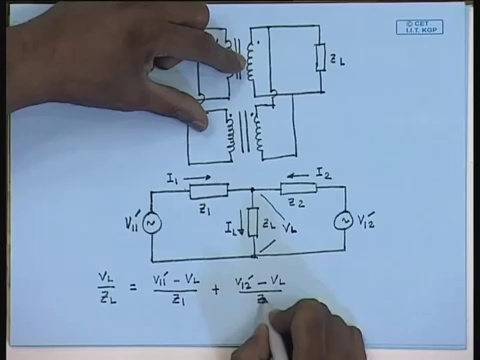 © CET
I.I.T. KGP
ZL
I1 I2
Z1 Z2
V11' IL ZL VL V12'
VL/ZL = V11' - VL/Z1 + V12' - VL/Z